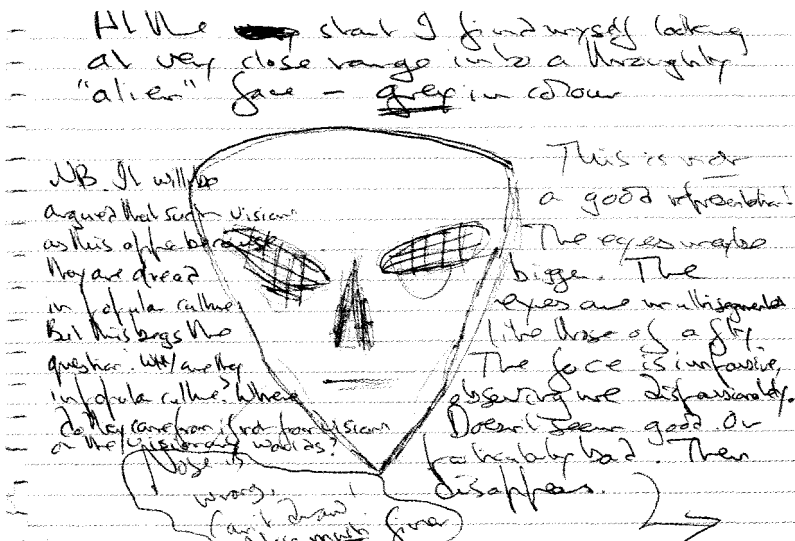 At the start I find myself looking
at very close range into a throughly
"alien" face - grey in colour
NB. It will be
argued that such visions
as this appear because
they are already
in popular culture.
But this begs the
question. Why are they
in popular culture? Where
do they come from if not from visions
or the visionary worlds?
This is not
a good representation!
The eyes maybe
bigger. The
eyes are multisegmented
like those of a fly.
The face is impassive,
observing me dispassionately.
Doesn't seem good or
particularly bad. Then
disappears.
Nose is
wrong,
can't draw!
much finer